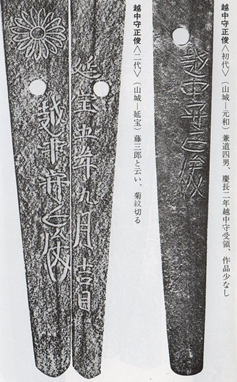 越中守正俊〈初代〉(山城―元和)兼道四男、慶長二年越中守受領、作品少なし
越中守正俊
越中守正俊〈二代〉(山城―延宝)藤三郎と云い、菊紋切る
延宝五年九月吉日
越中守正俊